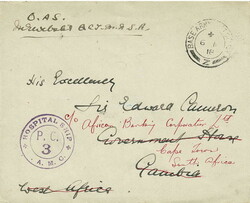 O.A.S.
His Excellency
Sir Edward Cameron
c/o African Banking Corporation Ltd
Government House
Cape Town
South Africa
Gambia
West Africa
HOSPITAL SHIP
P.C.
3
A.M.C.
BASE ARMY